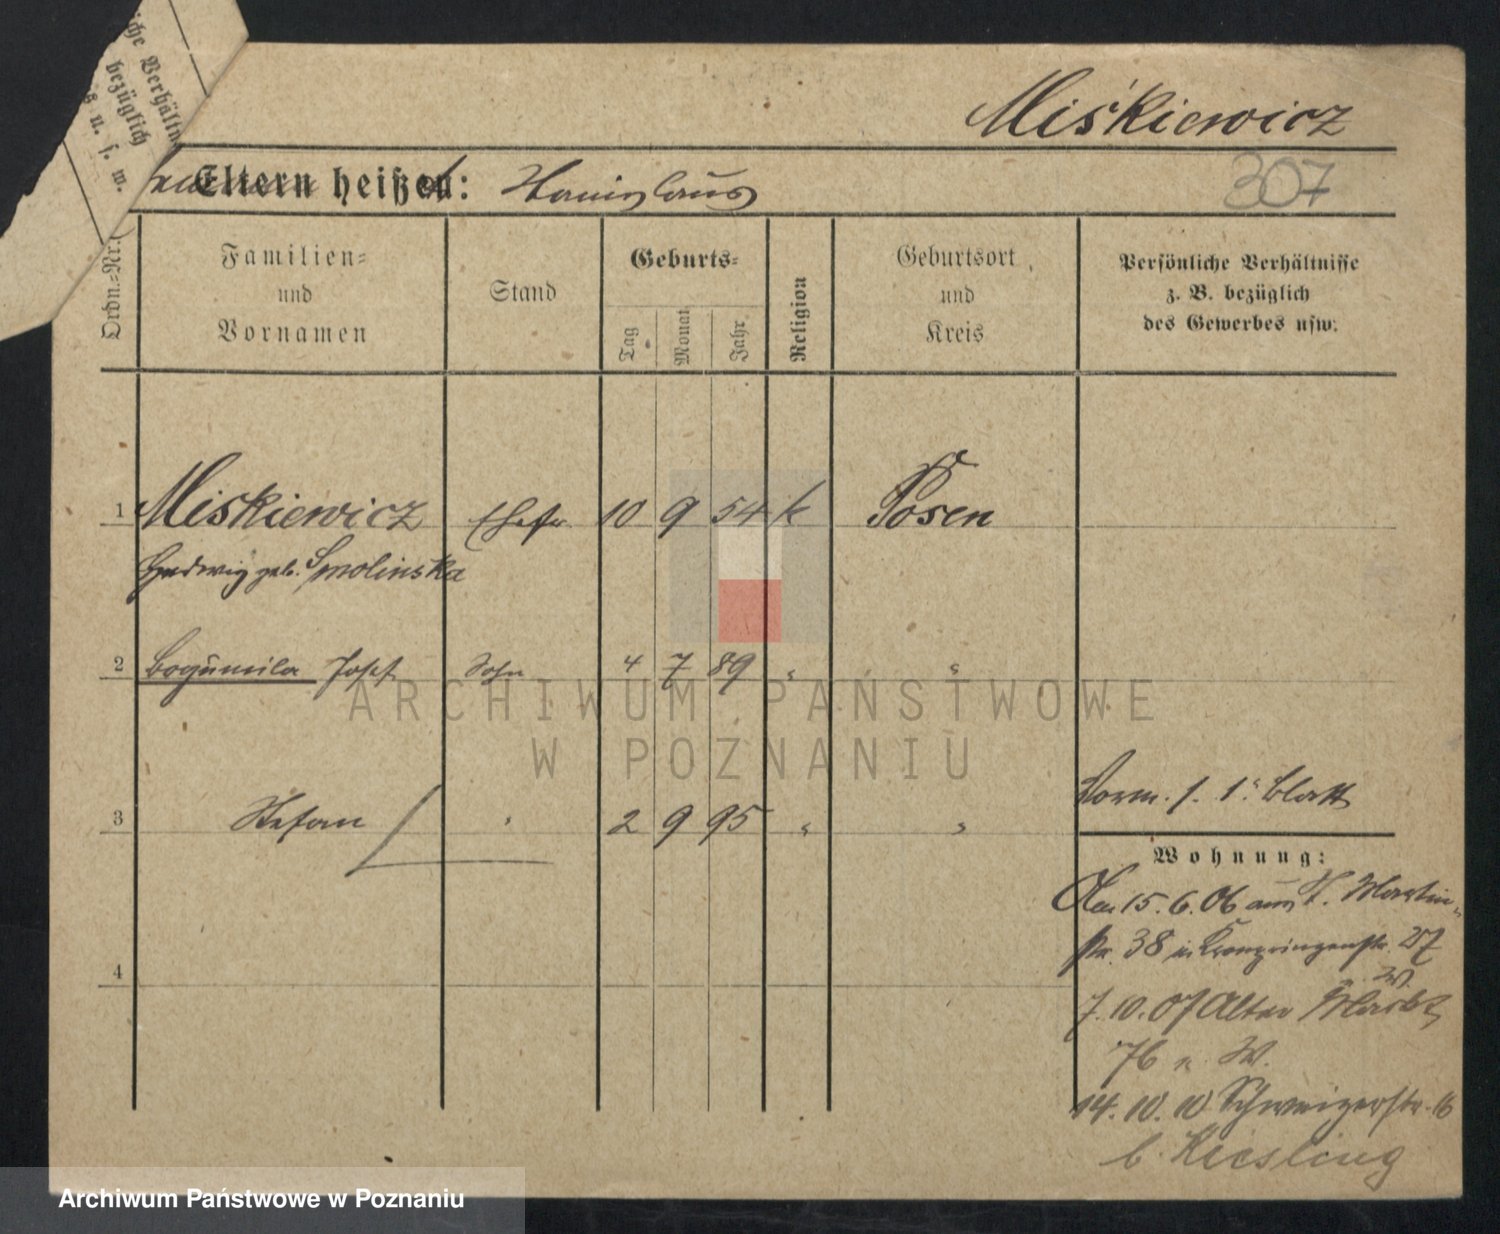 che Verhältn
bezüglich
s u. s. w.
Miśkiewicz
Eltern heißen: Stanislaus
307
Ordn.-Nr.
Familien-
und
Vornamen
Stand
Geburts-
Tag
Monat
Jahr
Religion
Geburtsort
und
Kreis
Persönliche Verhältnisse
z. B. bezüglich
des Gewerbes usw.
1 Miskiewicz Ehefr. 10 9 54 k Posen
Hedwig geb. Smolinska
2 Bogumila Josef Sohn 4 7 89 " "
3 Stefan " 2 9 95 " "
Vorm. s. 1. Blatt
Wohnung:
15. 6. 06 aus St. Martin-
str. 38 in Kronprinzenstr. 27
n. W.
4
7. 10. 07 Alter Markt
76 n. W.
14. 10. 10 Schweizerstr. 16
b. Kiesling
ARCHIWUM PAŃSTWOWE
W POZNANIU
Archiwum Państwowe w Poznaniu